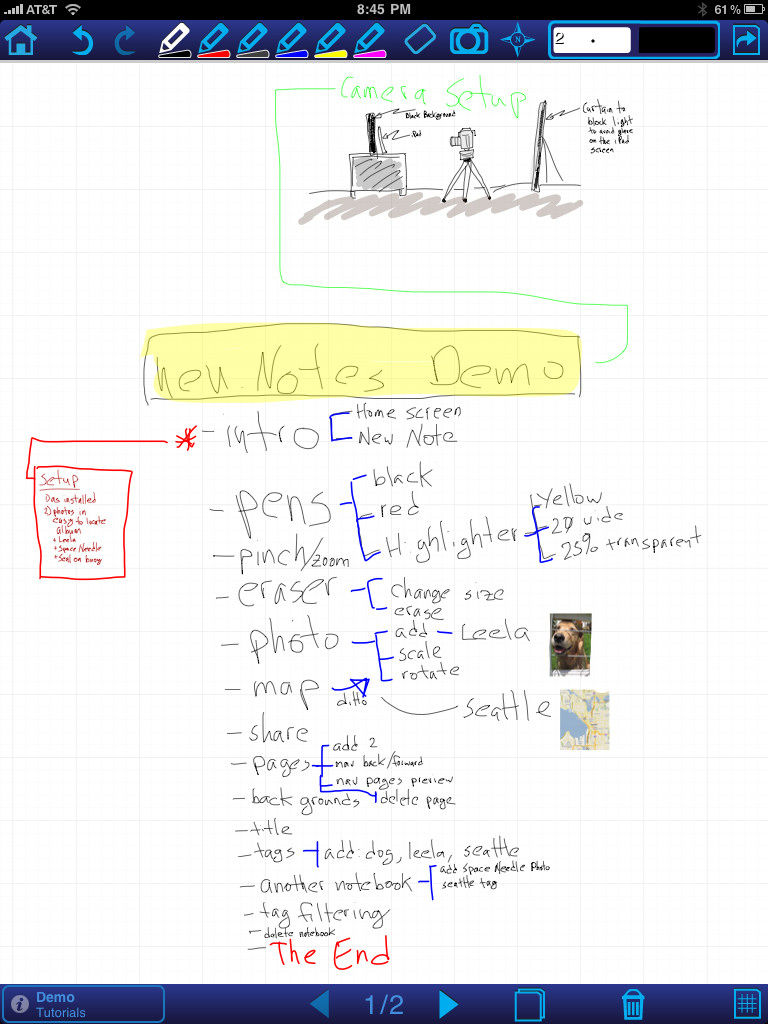 AT&T 8:45 PM 61%
N 2
Camera Setup
Black Background
iPad
Curtain to
block light
to avoid glare
on the iPad
screen
neu.Notes Demo
* - intro
Home screen
New Note
Setup
Das installed
2) photos in
easy to locate
album
+ Leela
+ Space Needle
+ Seal on buoy
- pens
black
red
Highlighter
Yellow
20 wide
25% transparent
- pinch/zoom
- eraser
change size
erase
- photo
add - Leela
scale
rotate
- map
ditto
seattle
- share
- pages
add 2
nav back/forward
nav pages preview
delete page
- backgrounds
- title
- tags add: dog, leela, seattle
- another notebook
add Space Needle Photo
seattle tag
- tag filtering
- delete notebook
- The End
Demo
Tutorials
1/2